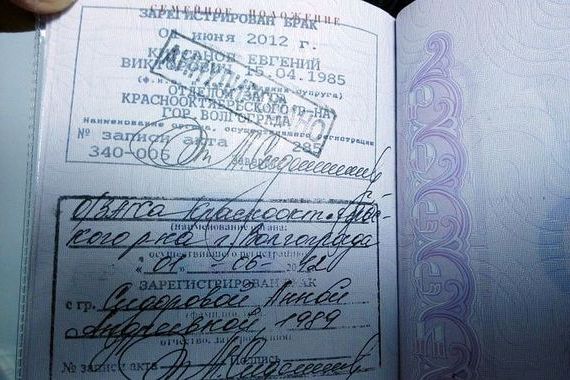 СЕМЕЙНОЕ ПОЛОЖЕНИЕ
ЗАРЕГИСТРИРОВАН БРАК
01 июня 2012 г.
ЕВГЕНИЙ
ВИКТОРОВИЧ 15.04.1985
ОТДЕЛОМ ЗАГСА
КРАСНООКТЯБРЬСКОГО Р-НА
ГОР. ВОЛГОГРАДА
Наименование органа, осуществившего регистрацию
№ записи акта 285
340-006
О/ЗАГСа Краснооктябрьс-
кого р-на г. Волгограда
(наименование органа,
осуществившего регистрацию)
"01" - 06 - 2012
ЗАРЕГИСТРИРОВАН БРАК
с гр. Сидоровой Анной
Андреевной, 1989
№ записи акта Подпись